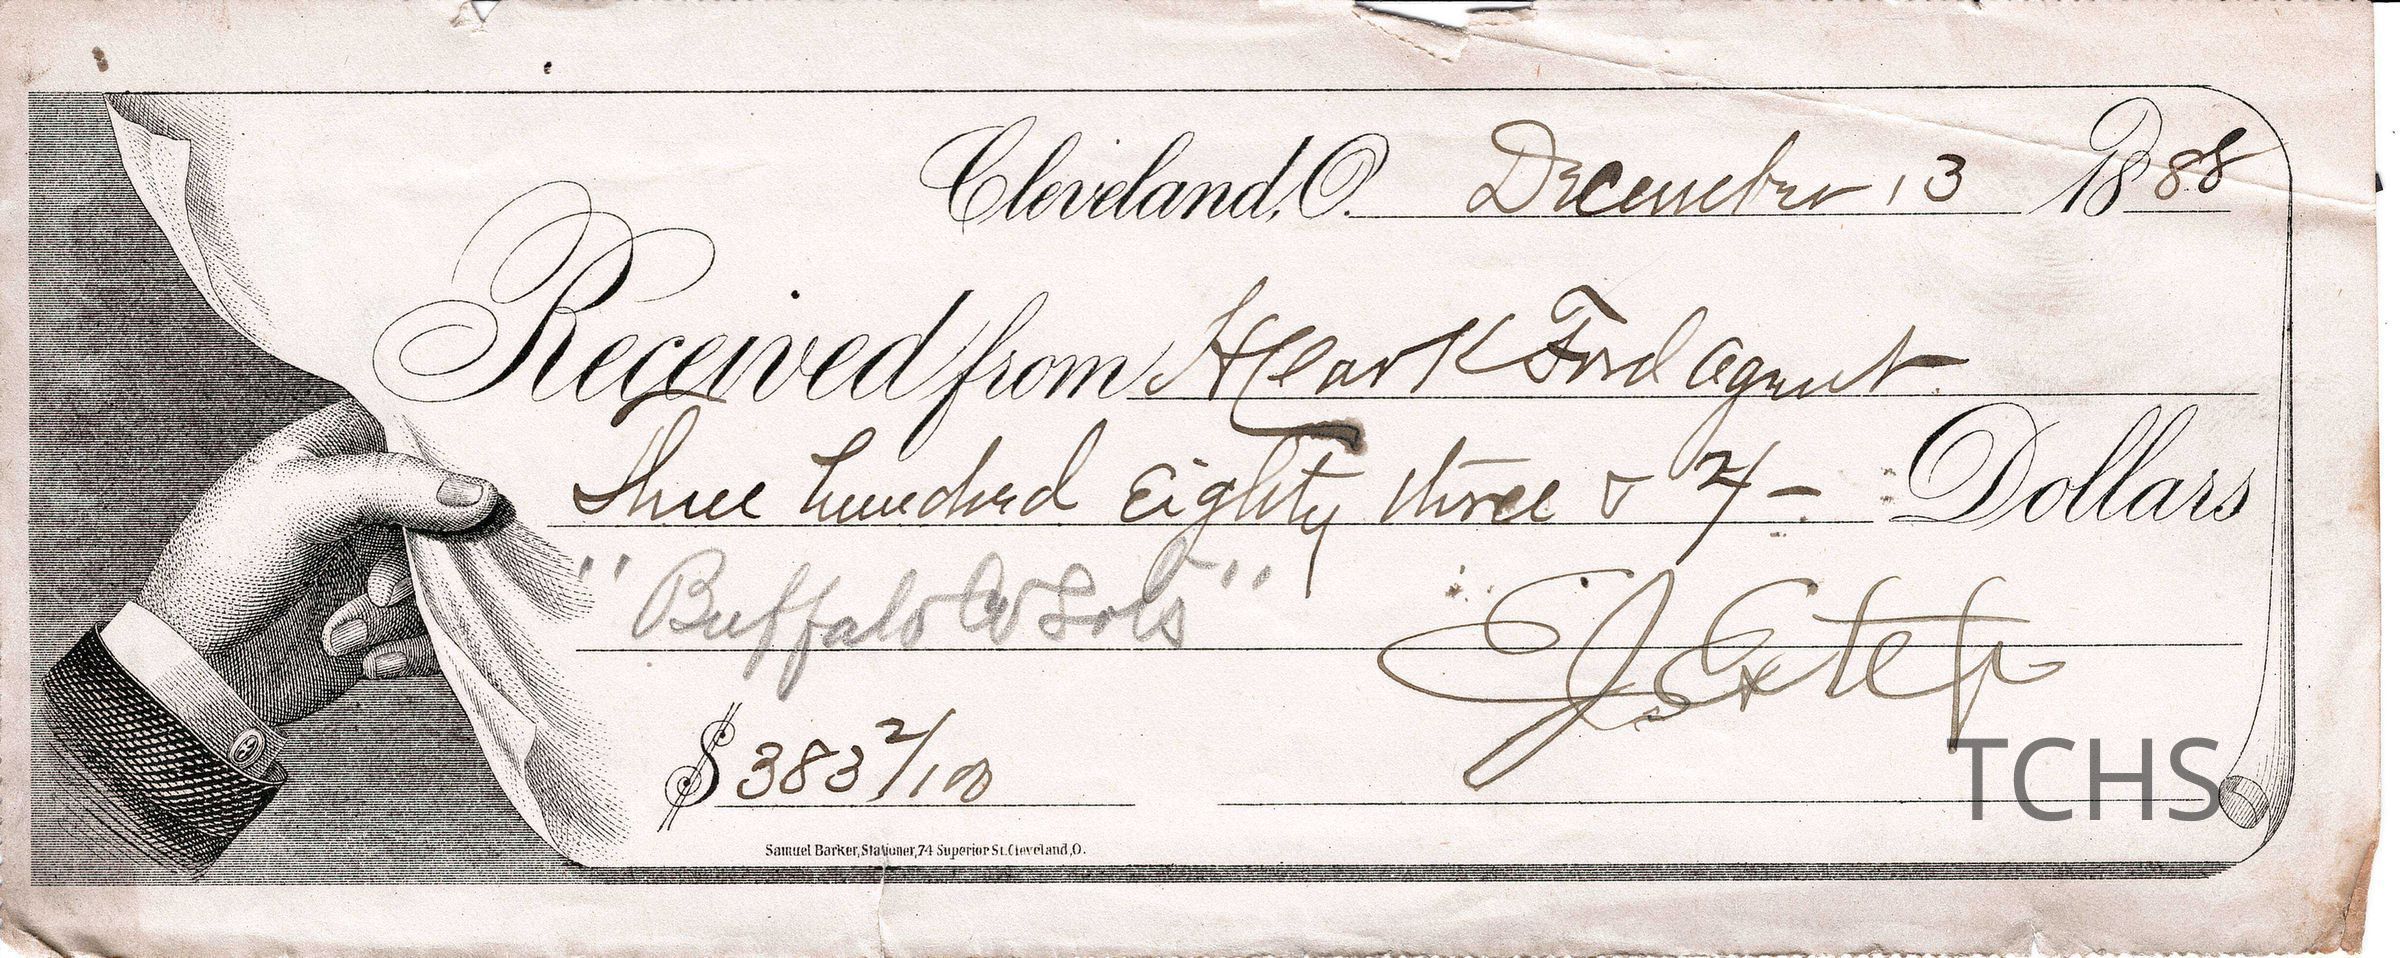 Cleveland, O. December 13 1888
Received from H Clark Ford agent
three hundred Eighty three & 2/- Dollars
"Buffalo Co Lots"
E J Estep
$383 2/100
TCHS
Samuel Barker, Stationer, 74 Superior St. Cleveland, O.